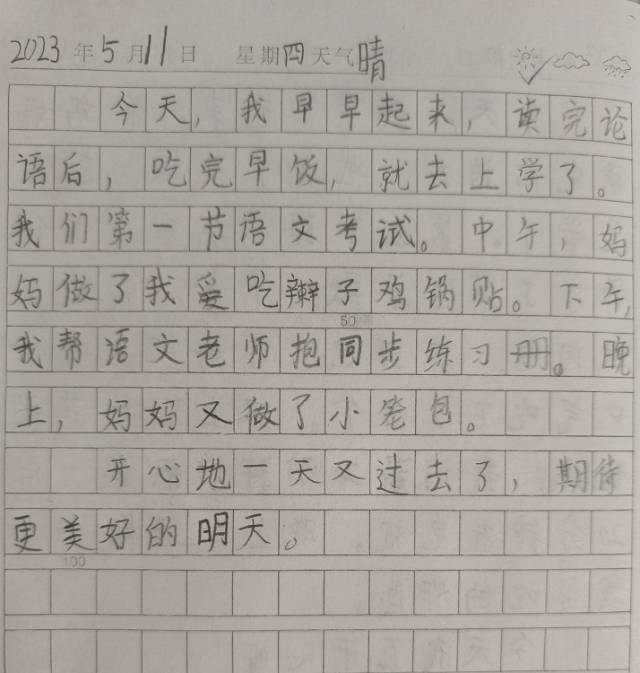 2023年5月11日 星期四天气晴
今天，我早早起来，读完论
语后，吃完早饭，就去上学了。
我们第一节语文考试。中午，妈
妈做了我爱吃辩子鸡锅贴。下午，
50
我帮语文老师抱同步练习册。晚
上，妈妈又做了小笼包。
开心地一天又过去了，期待
更美好的明天。
100